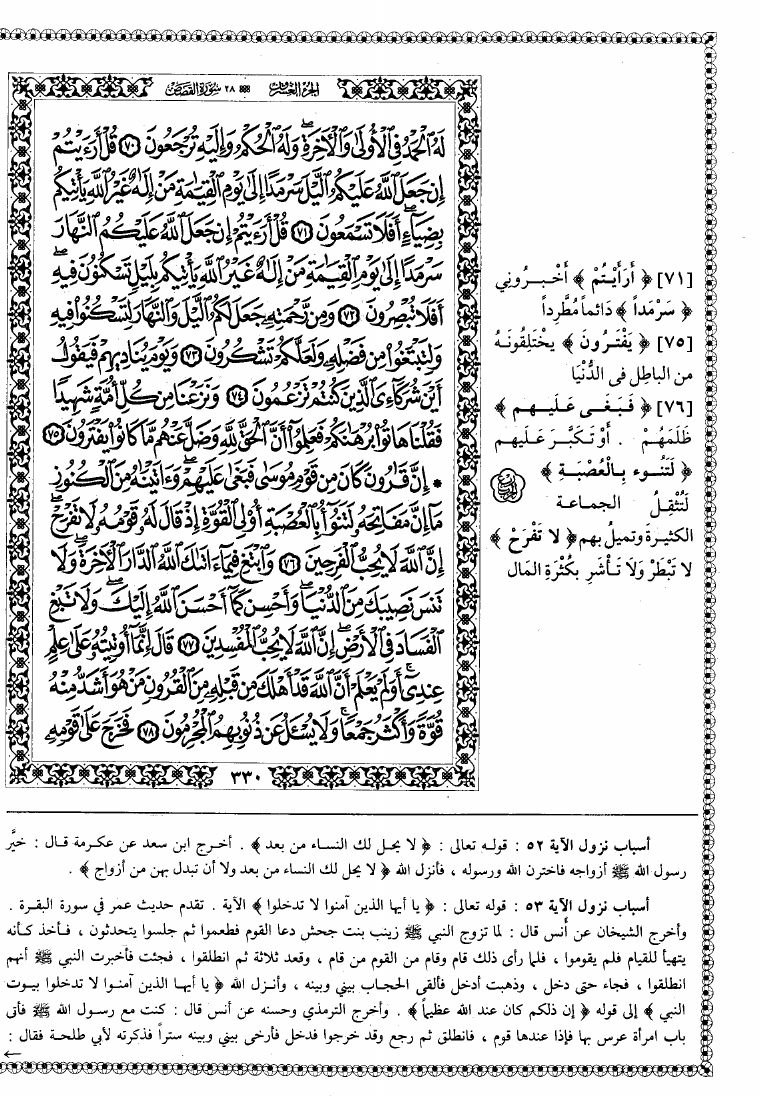 الجزء العشرون ٢٨ سورة القصص
لَهُ الْحَمْدُ فِي الْأُولَىٰ وَالْآخِرَةِ وَلَهُ الْحُكْمُ وَإِلَيْهِ تُرْجَعُونَ ٧٠ قُلْ أَرَءَيْتُمْ
إِن جَعَلَ اللَّهُ عَلَيْكُمُ الَّيْلَ سَرْمَدًا إِلَىٰ يَوْمِ الْقِيَٰمَةِ مَنْ إِلَٰهٌ غَيْرُ اللَّهِ يَأْتِيكُم
بِضِيَاءٍ أَفَلَا تَسْمَعُونَ ٧١ قُلْ أَرَءَيْتُمْ إِن جَعَلَ اللَّهُ عَلَيْكُمُ النَّهَارَ
سَرْمَدًا إِلَىٰ يَوْمِ الْقِيَٰمَةِ مَنْ إِلَٰهٌ غَيْرُ اللَّهِ يَأْتِيكُم بِلَيْلٍ تَسْكُنُونَ فِيهِ
أَفَلَا تُبْصِرُونَ ٧٢ وَمِن رَّحْمَتِهِ جَعَلَ لَكُمُ الَّيْلَ وَالنَّهَارَ لِتَسْكُنُوا فِيهِ
وَلِتَبْتَغُوا مِن فَضْلِهِ وَلَعَلَّكُمْ تَشْكُرُونَ ٧٣ وَيَوْمَ يُنَادِيهِمْ فَيَقُولُ
أَيْنَ شُرَكَاءِيَ الَّذِينَ كُنتُمْ تَزْعُمُونَ ٧٤ وَنَزَعْنَا مِن كُلِّ أُمَّةٍ شَهِيدًا
فَقُلْنَا هَاتُوا بُرْهَٰنَكُمْ فَعَلِمُوا أَنَّ الْحَقَّ لِلَّهِ وَضَلَّ عَنْهُم مَّا كَانُوا يَفْتَرُونَ ٧٥
* إِنَّ قَٰرُونَ كَانَ مِن قَوْمِ مُوسَىٰ فَبَغَىٰ عَلَيْهِمْ وَءَاتَيْنَٰهُ مِنَ الْكُنُوزِ
مَا إِنَّ مَفَاتِحَهُ لَتَنُوأُ بِالْعُصْبَةِ أُولِي الْقُوَّةِ إِذْ قَالَ لَهُ قَوْمُهُ لَا تَفْرَحْ
إِنَّ اللَّهَ لَا يُحِبُّ الْفَرِحِينَ ٧٦ وَابْتَغِ فِيمَا ءَاتَىٰكَ اللَّهُ الدَّارَ الْآخِرَةَ وَلَا
تَنسَ نَصِيبَكَ مِنَ الدُّنْيَا وَأَحْسِن كَمَا أَحْسَنَ اللَّهُ إِلَيْكَ وَلَا تَبْغِ
الْفَسَادَ فِي الْأَرْضِ إِنَّ اللَّهَ لَا يُحِبُّ الْمُفْسِدِينَ ٧٧ قَالَ إِنَّمَا أُوتِيتُهُ عَلَىٰ عِلْمٍ
عِندِي أَوَلَمْ يَعْلَمْ أَنَّ اللَّهَ قَدْ أَهْلَكَ مِن قَبْلِهِ مِنَ الْقُرُونِ مَنْ هُوَ أَشَدُّ مِنْهُ
قُوَّةً وَأَكْثَرُ جَمْعًا وَلَا يُسْـَٔلُ عَن ذُنُوبِهِمُ الْمُجْرِمُونَ ٧٨ فَخَرَجَ عَلَىٰ قَوْمِهِ
٣٣٠
[٧١] ﴿ أَرَأَيْتُمْ ﴾ أَخْبِرُونِي
﴿ سَرْمَداً ﴾ دَائماً مُطَّرِداً
[٧٥] ﴿ يَفْتَرُونَ ﴾ يخْتَلِقُونَهُ
من الباطِلِ فى الدُّنْيَا
[٧٦] ﴿ فَبَغَى عَلَيهِم ﴾
ظَلَمَهُمْ . أَوْ تَكَبَّرَ عَلَيهِم
﴿ لَتَنُوء بِالْعُصْبَةِ ﴾
لَتُثْقِلُ الجماعة
الكثيرةَ وتميلُ بهم ﴿ لا تَفْرَحْ ﴾
لا تَبْطَرْ وَلَا تَأْشَرِ بِكُثْرَةِ المَال
أسباب نزول الآية ٥٢ : قوله تعالى : ﴿ لا يحل لك النساء من بعد ﴾ . أخرج ابن سعد عن عكرمة قال : خيَّر
رسول الله ﷺ أزواجه فاخترن الله ورسوله ، فأنزل الله ﴿ لا يحل لك النساء من بعد ولا أن تبدل بهن من أزواج ﴾ .
أسباب نزول الآية ٥٣ : قوله تعالى : ﴿ يا أيها الذين آمنوا لا تدخلوا ﴾ الآية . تقدم حديث عمر في سورة البقرة .
وأخرج الشيخان عن أنس قال : لما تزوج النبي ﷺ زينب بنت جحش دعا القوم فطعموا ثم جلسوا يتحدثون ، فأخذ كأنه
يتهيأ للقيام فلم يقوموا ، فلما رأى ذلك قام وقام من القوم من قام ، وقعد ثلاثة ثم انطلقوا ، فجئت فأخبرت النبي ﷺ أنهم
انطلقوا ، فجاء حتى دخل ، وذهبت أدخل فألقى الحجاب بيني وبينه ، وأنزل الله ﴿ يا أيها الذين آمنوا لا تدخلوا بيوت
النبي ﴾ إلى قوله ﴿ إن ذلكم كان عند الله عظيماً ﴾ . وأخرج الترمذي وحسنه عن أنس قال : كنت مع رسول الله ﷺ فأتى
باب امرأة عرس بها فإذا عندها قوم ، فانطلق ثم رجع وقد خرجوا فدخل فأرخى بيني وبينه ستراً فذكرته لأبي طلحة فقال :
←